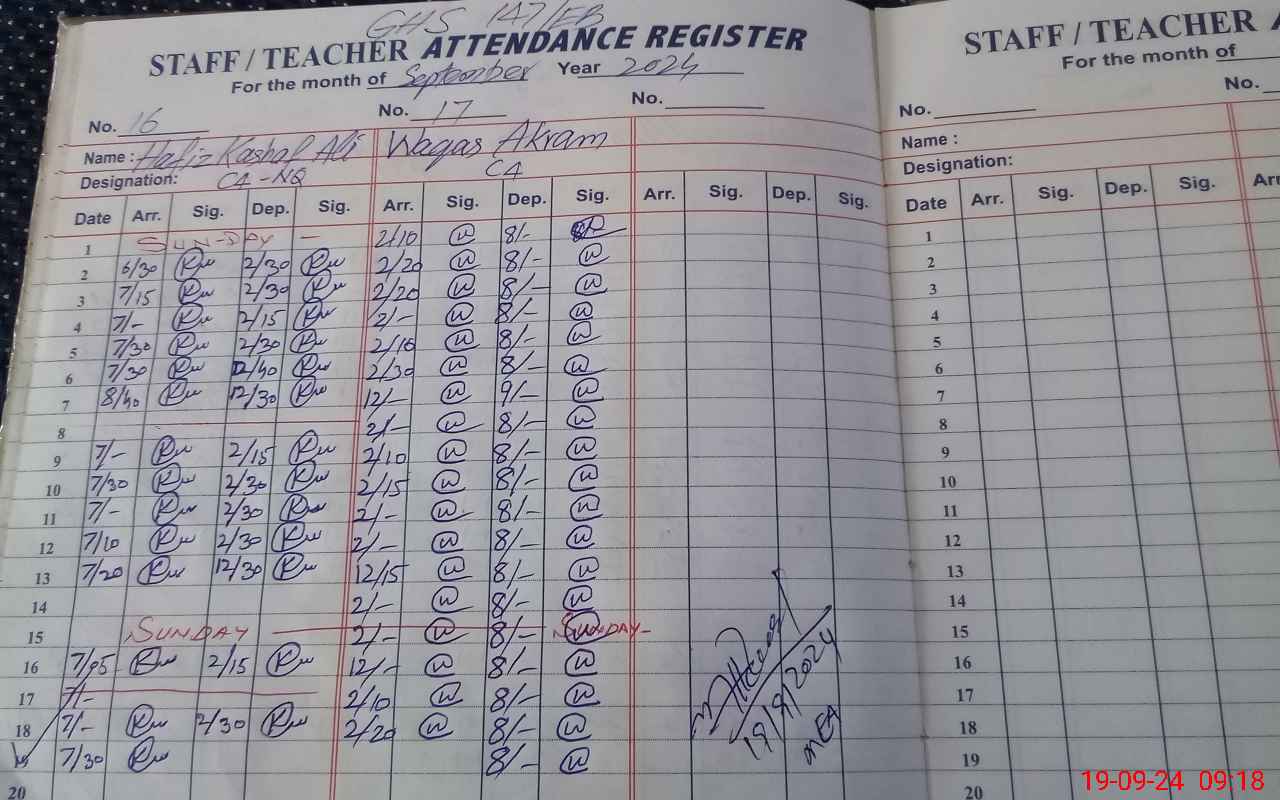 GHS 147/EB
STAFF / TEACHER ATTENDANCE REGISTER
For the month of September Year 2024
No. 16 No. 17 No.
Name : Hafiz Kashaf Ali Waqas Akram
Designation: C4 - NQ C4
Date Arr. Sig. Dep. Sig. Arr. Sig. Dep. Sig. Arr. Sig. Dep. Sig.
1 SUN-DAY - 2/10 W 8/-
2 6/30 Kw 2/30 Kw 2/20 W 8/- W
3 7/15 Kw 2/30 Kw 2/20 W 8/- W
4 7/- Kw 2/15 Kw 2/- W 8/- W
5 7/30 Kw 2/30 Kw 2/10 W 8/- W
6 7/30 Kw 12/40 Kw 2/30 W 8/- W
7 8/40 Kw 12/30 Kw 12/- W 9/- W
8 2/- W 8/- W
9 7/- Kw 2/15 Kw 2/10 W 8/- W
10 7/30 Kw 2/30 Kw 2/15 W 8/- W
11 7/- Kw 2/30 Kw 2/- W 8/- W
12 7/10 Kw 2/30 Kw 2/- W 8/- W
13 7/20 Kw 12/30 Kw 12/15 W 8/- W
14 2/- W 8/- W
15 SUNDAY 2/- W 8/- SUNDAY
16 Kw 2/15 Kw 12/- W 8/- W
17 7/- 2/10 W 8/- W
18 7/- Kw 2/30 Kw 2/20 W 8/- W
7/30 Kw 8/- W
20
19/9/2024
MEA
STAFF / TEACHER A
For the month of
No. No.
Name :
Designation:
Date Arr. Sig. Dep. Sig. Arr
1
2
3
4
5
6
7
8
9
10
11
12
13
14
15
16
17
18
19
20
19-09-24 09:18